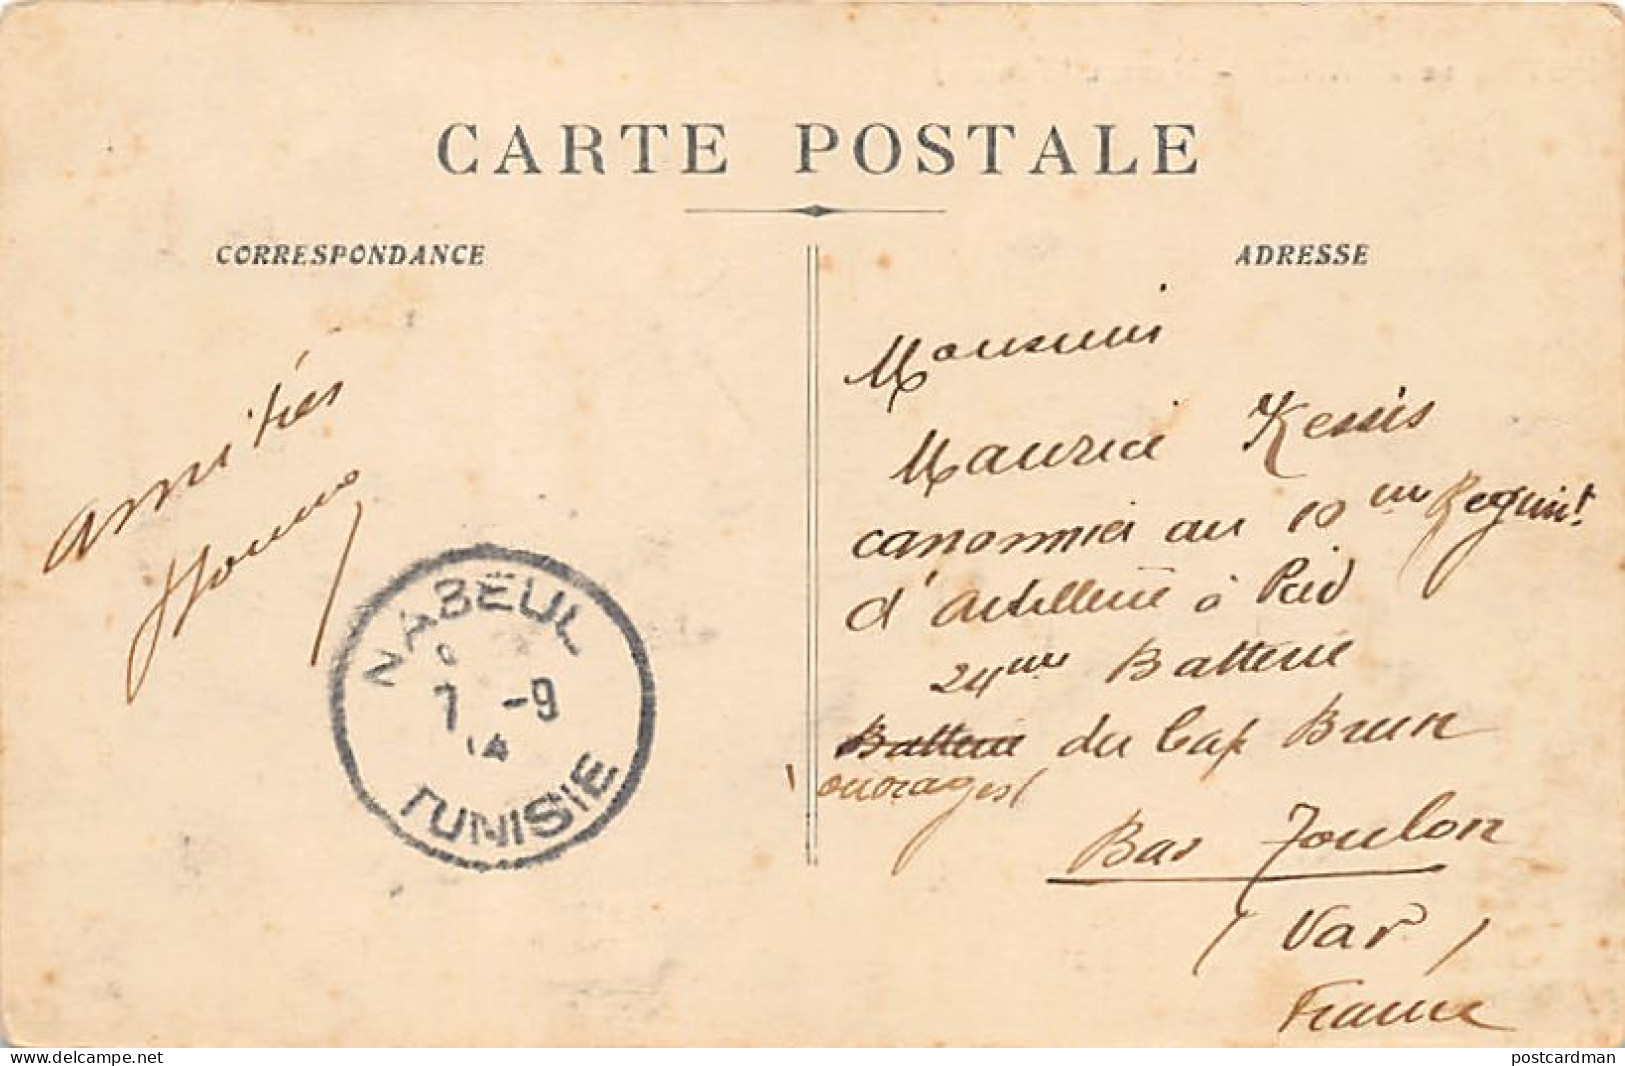 CARTE POSTALE
CORRESPONDANCE
ADRESSE
amitiés
NABEUL
7 -9
14
TUNISIE
Monsieur
Maurice Kessis
canonnier au 10 eme Regimt
d'Artillerie à Pied
24eme Batterie
Batterie du Cap Brun
ouvrages
Bas Toulon
(Var)
France
postcardman